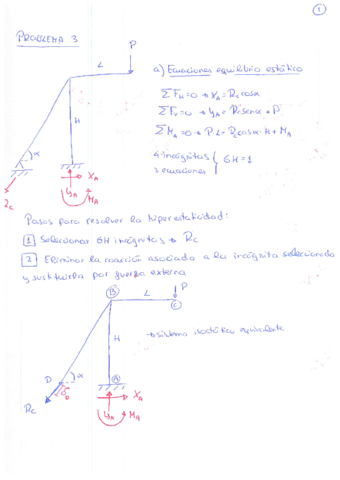 1
PROBLEMA 3
P
L
a) Ecuaciones equilibrio estático
ΣF_H=0 → X_A = R_c cosα
H
ΣF_V=0 → Y_A = R_c senα + P
ΣM_A=0 → P·L = R_c cosα·H + M_A
α
4 incógnitas
3 ecuaciones } GH=1
R_c
X_A
Y_A
M_A
Pasos para resolver la hiperestaticidad:
1 Seleccionar GH incógnitas → R_c
2 Eliminar la reacción asociada a la incógnita seleccionada
y sustituirla por fuerza externa
B
L
P
C
H
→ sistema isostático equivalente
D
α
A
R_c
X_A
Y_A
M_A